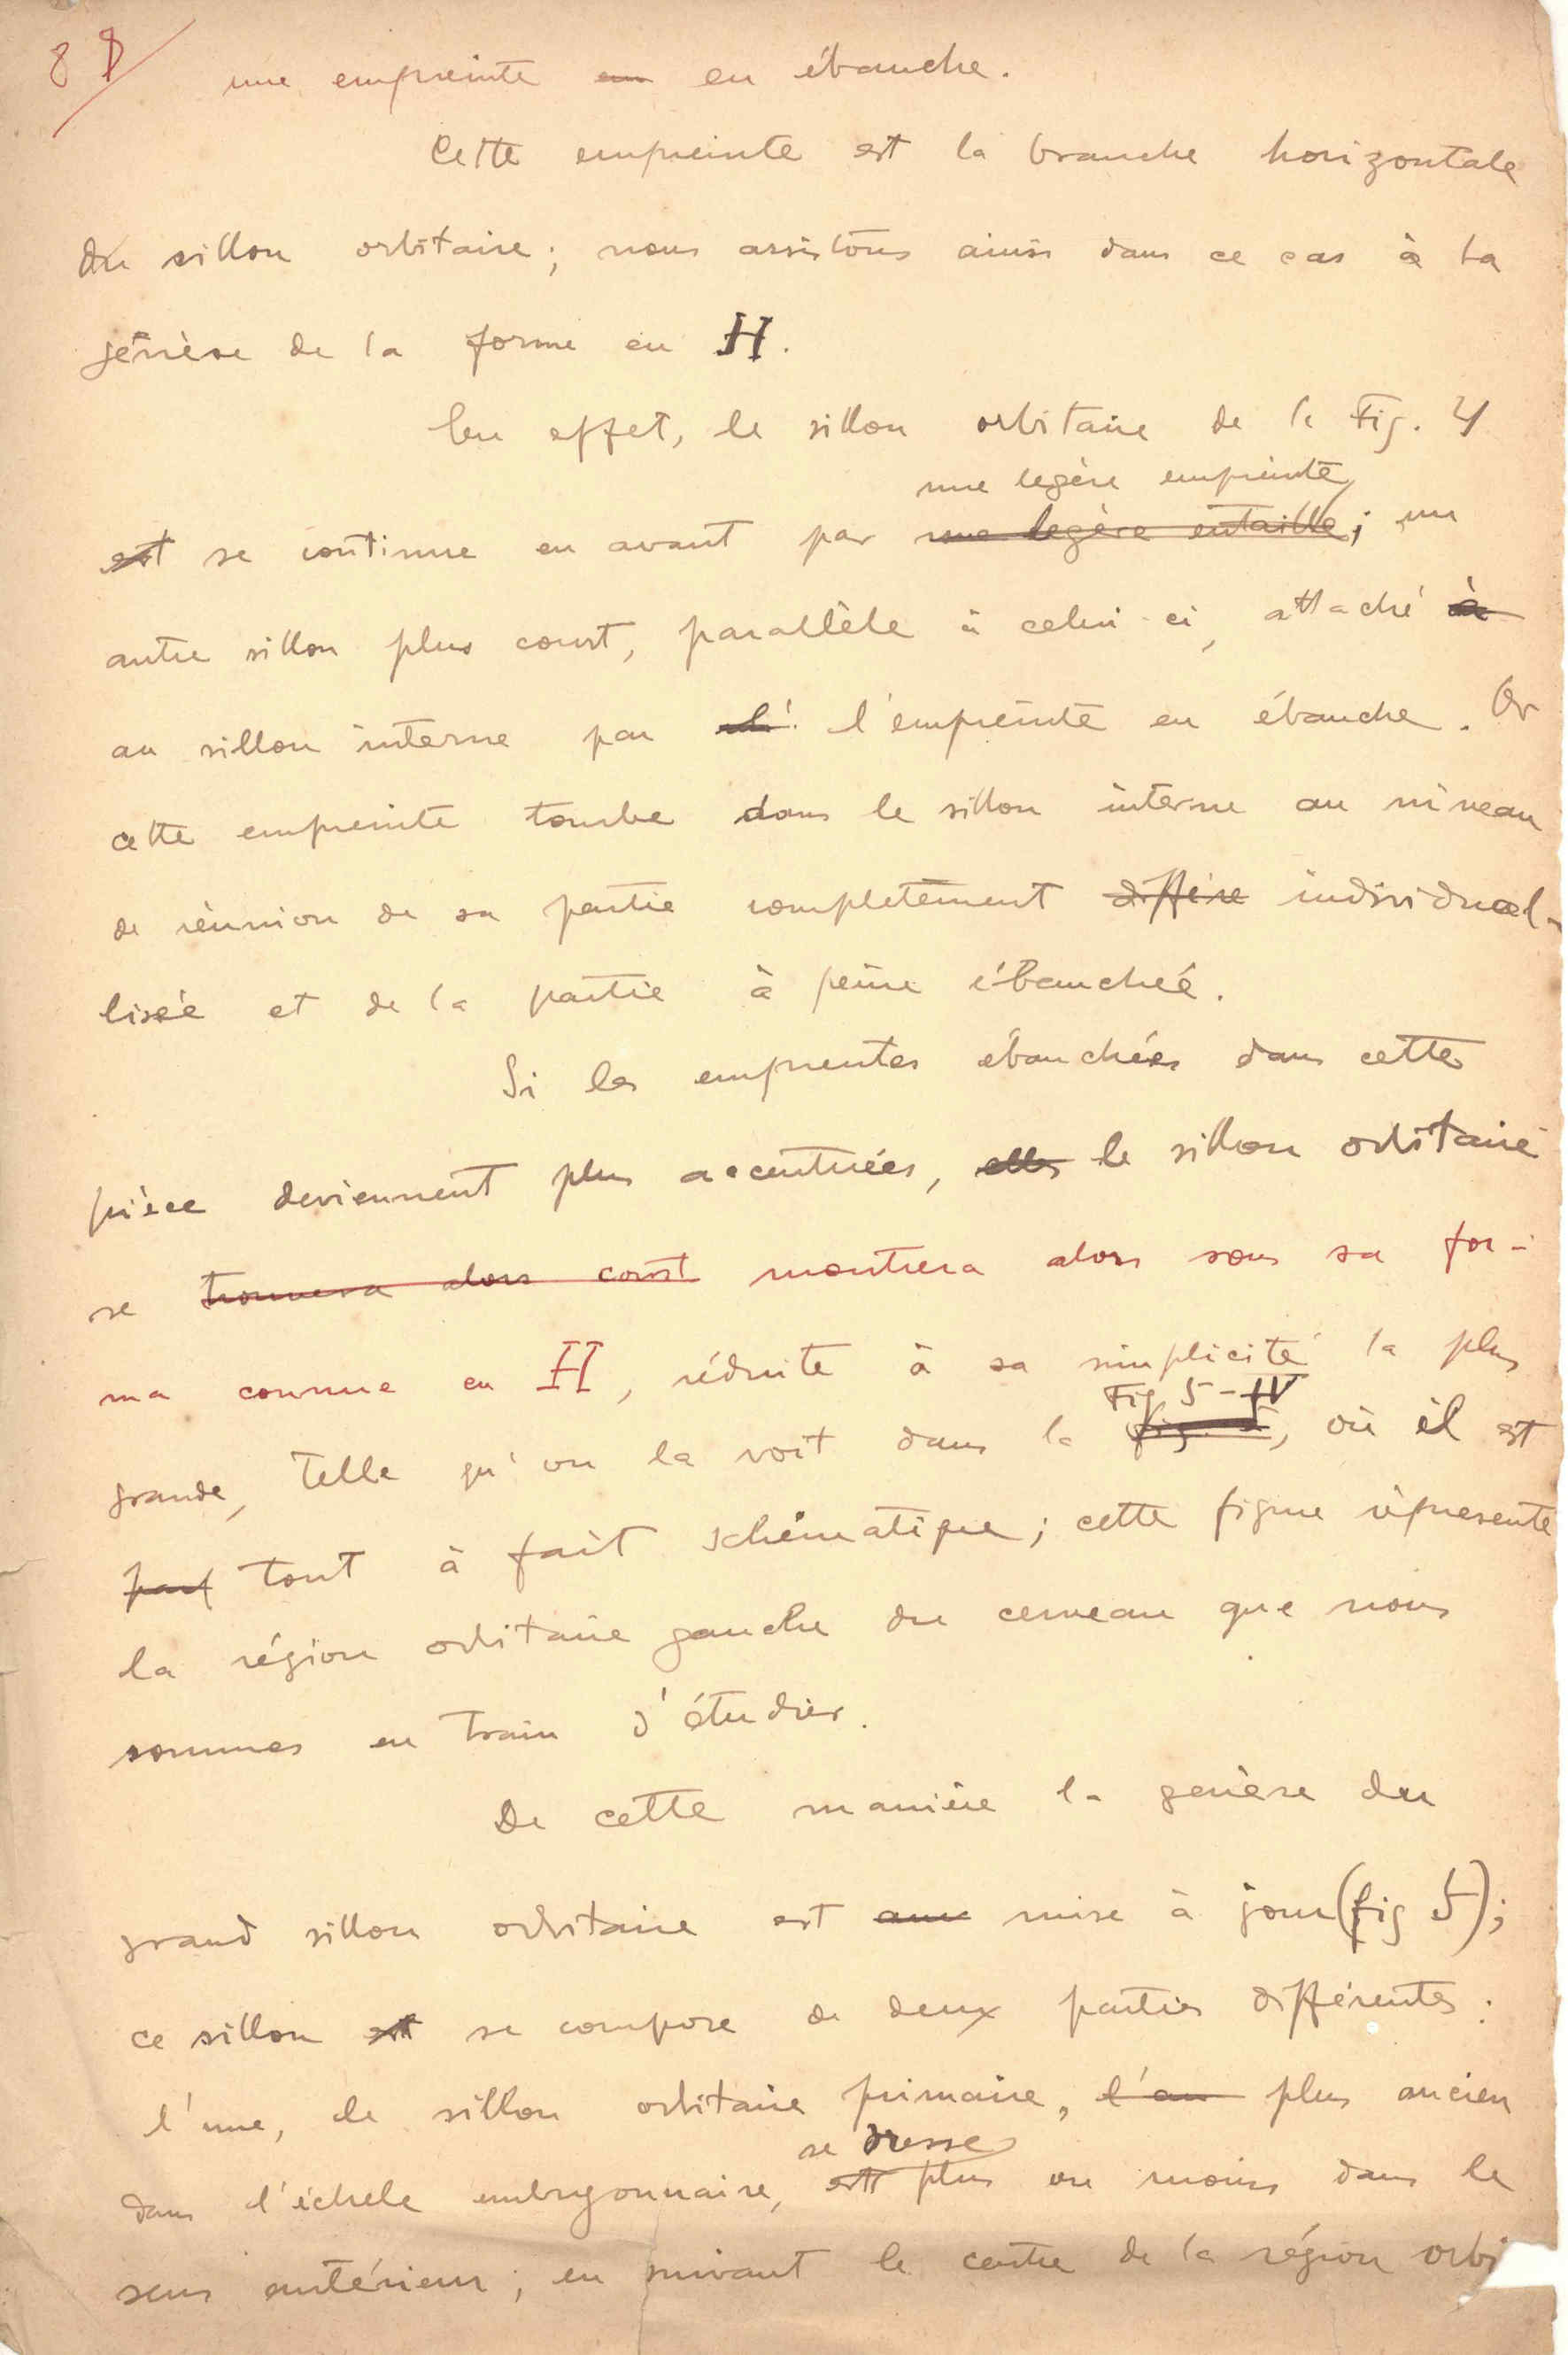 8
une empreinte en ébauche.
Cette empreinte est la branche horizontale
du sillon orbitaire; nous assistons ainsi dans ce cas à la
génèse de la forme en H.
En effet, le sillon orbitaire de la Fig. 4
une legère empreinte
est se continue en avant par une legère entaille; un
autre sillon plus court, parallèle à celui-ci, attaché à
au sillon interne par l'empreinte en ébauche. Or
cette empreinte tombe dans le sillon interne au niveau
de réunion de sa partie completement differe individual-
lisée et de la partie à peine ébauchée.
Si les empreintes ébauchées dans cette
pièce deviennent plus accentuées, elles le sillon orbitaire
se trouvera alors const montrera alors sous sa for-
ma connue en H, réduite à sa simplicité la plus
Fig 5-IV
grande, telle qu'on la voit dans la fig. 5, où il est
part tout à fait schématique; cette figure répresente
la région orbitaire gauche du cerveau que nous
sommes en train d'étudier.
De cette manière la genèse du
grand sillon orbitaire est mise à jour (fig 5);
ce sillon est se compose de deux parties différentes:
l'une, le sillon orbitaire primaire, l'au plus ancien
se dresse
dans l'échele embryonnaire, est plus ou moins dans le
sens antérieur; en suivant le centre de la région orbi